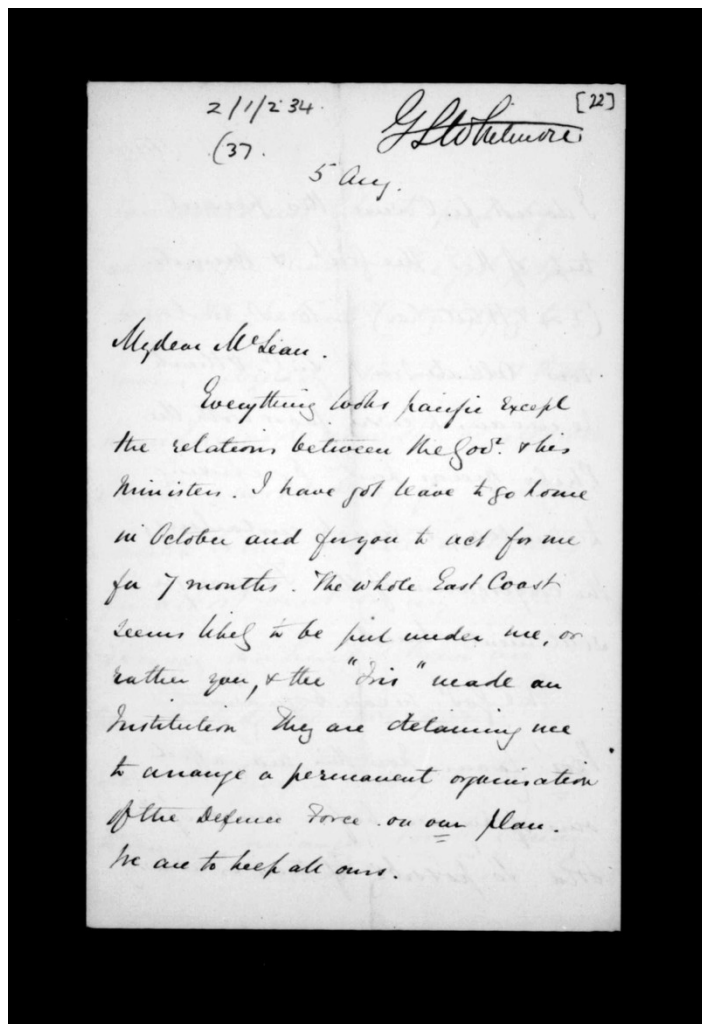 2/1/2 34.
[22]
G S Whitmore
(37.
5 Aug.
My dear McLean.
Everything looks pacific except
the relations between the Govr. & his
Ministers. I have got leave to go home
in October and for you to act for me
for 7 months. The whole East Coast
seems likely to be put under me, or
rather you, & the "Iris" made an
Institution They are detaining me
to arrange a permanent organisation
of the Defence Force on our plan.
We are to keep all ours.